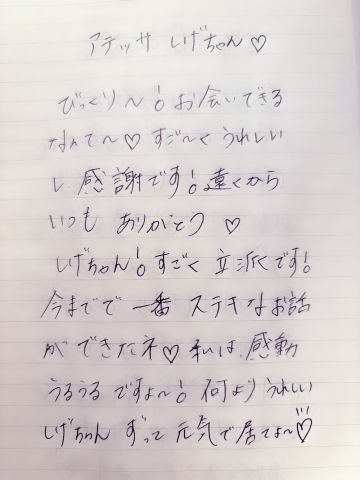 アテッサ しげちゃん♡
びっくり〜! お会いできる
なんて〜♡ すご〜く うれしい
し 感謝です! 遠くから
いつも ありがとう ♡
しげちゃん! すごく 立派です!
今までで 一番 ステキなお話
ができたネ♡ 私は、感動
うるうる ですょ〜! 何より うれしい
しげちゃん ずって 元気で居てよ〜♡